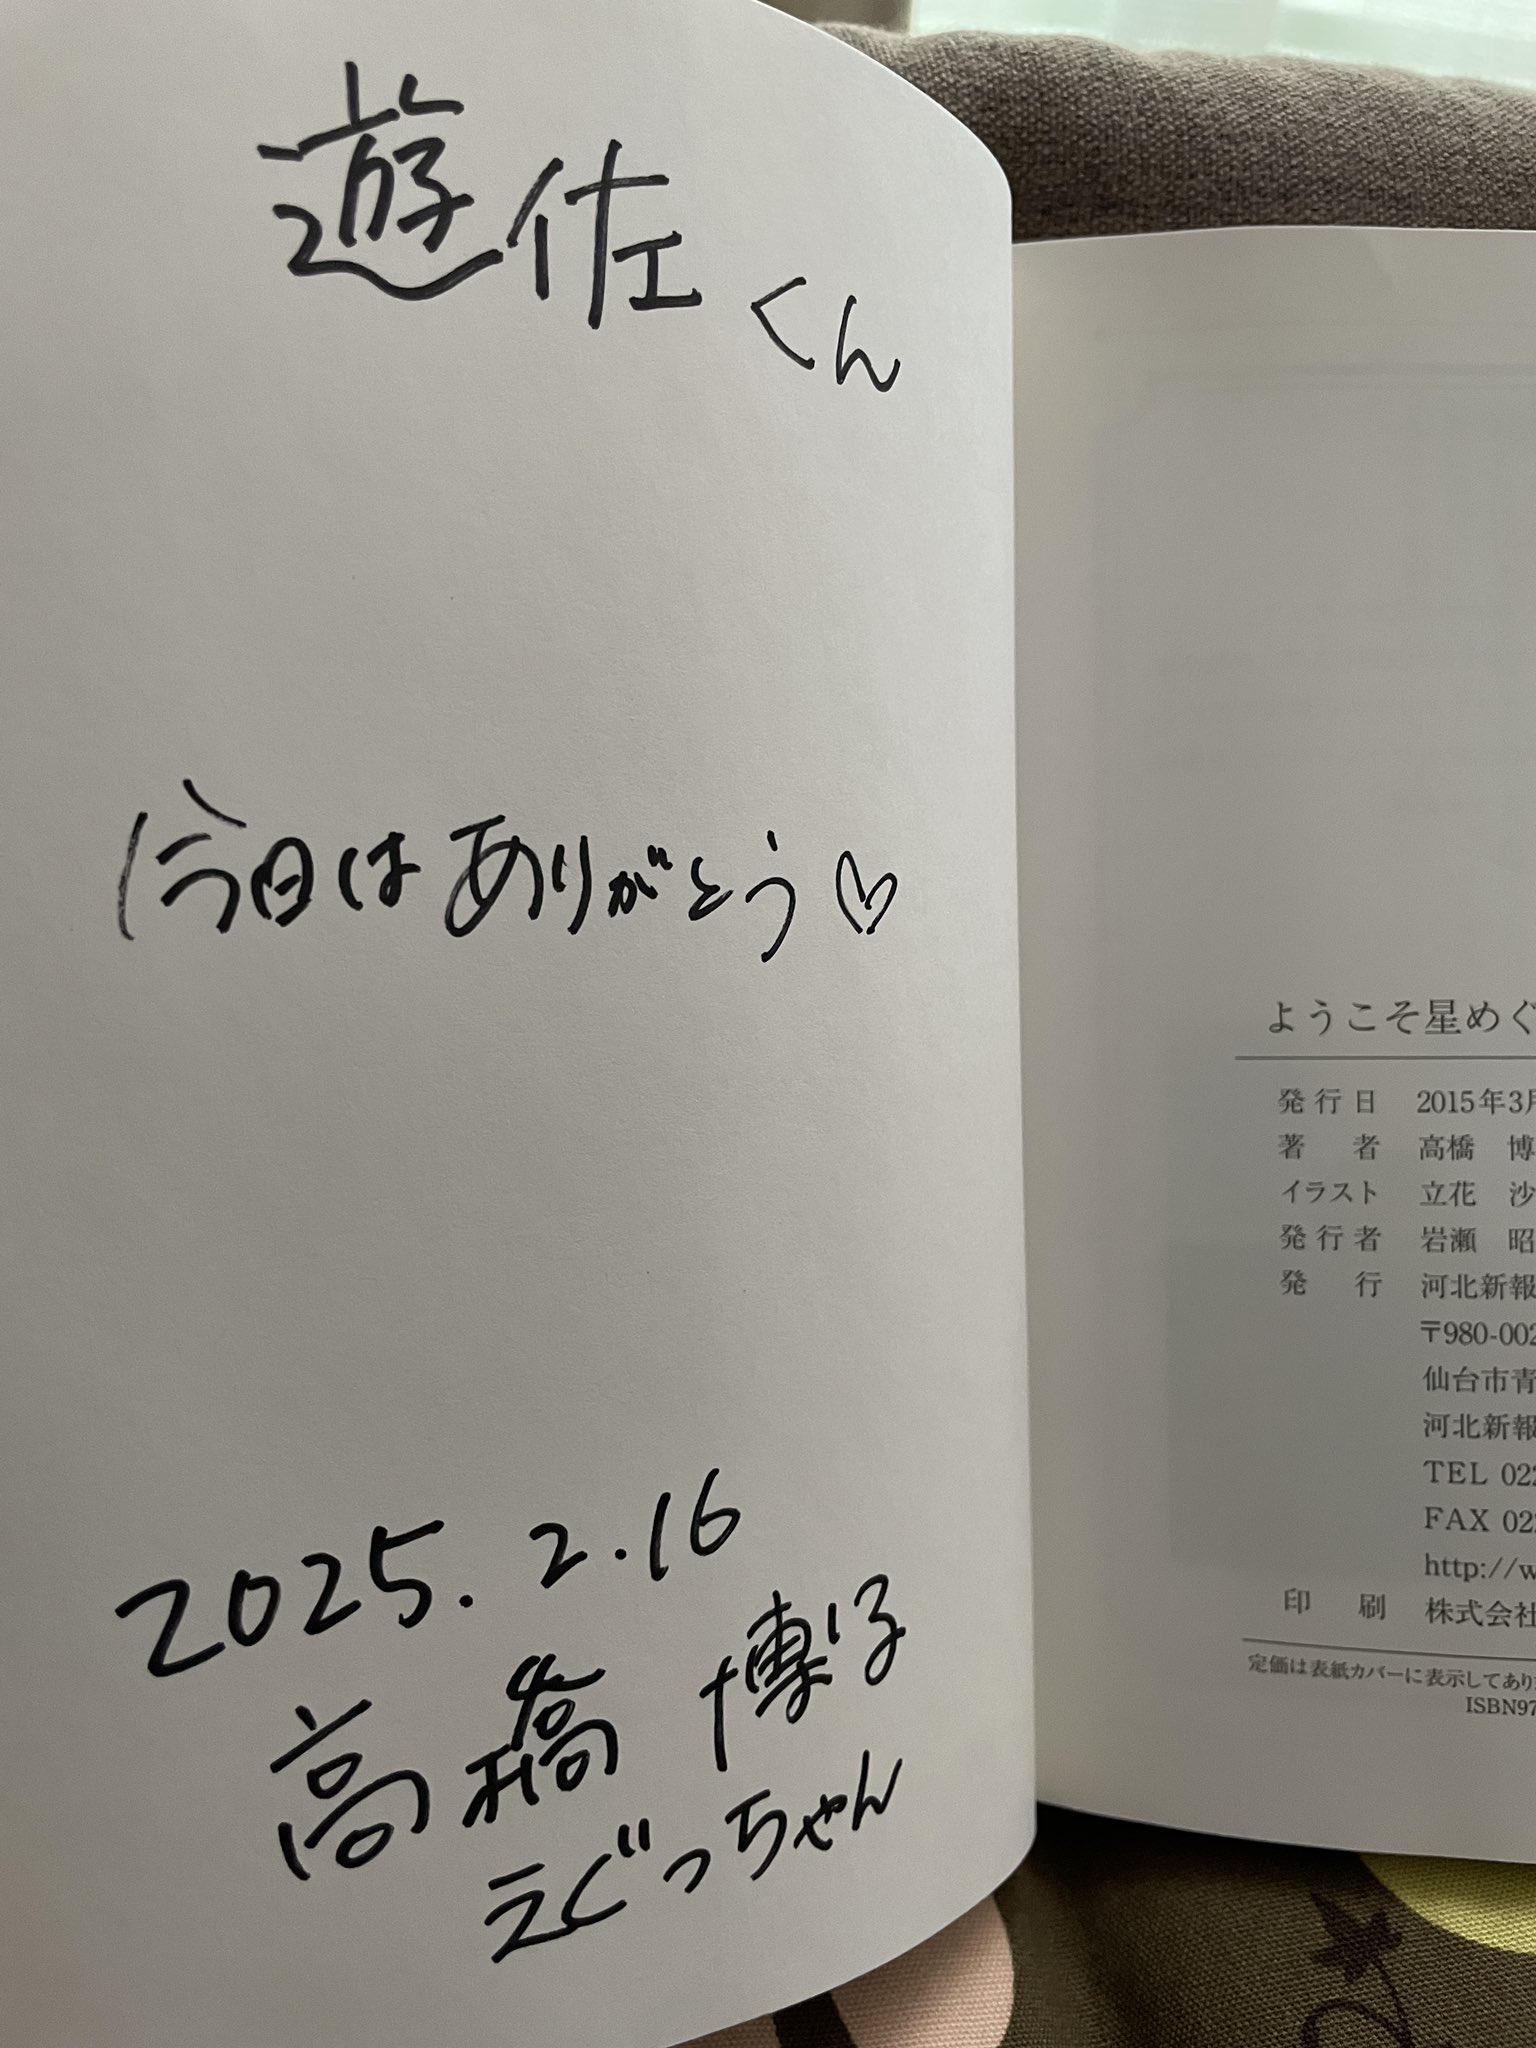 遊佐くん
今日はありがとう♡
2025.2.16
高橋 博子
えぐっちゃん
ようこそ星めぐ
発行日 2015年3月
著者 高橋 博
イラスト 立花 沙
発行者 岩瀬 昭
発行 河北新報
〒980-002
仙台市青
河北新報
TEL 022
FAX 022
http://w
印刷 株式会社
定価は表紙カバーに表示してあり
ISBN97